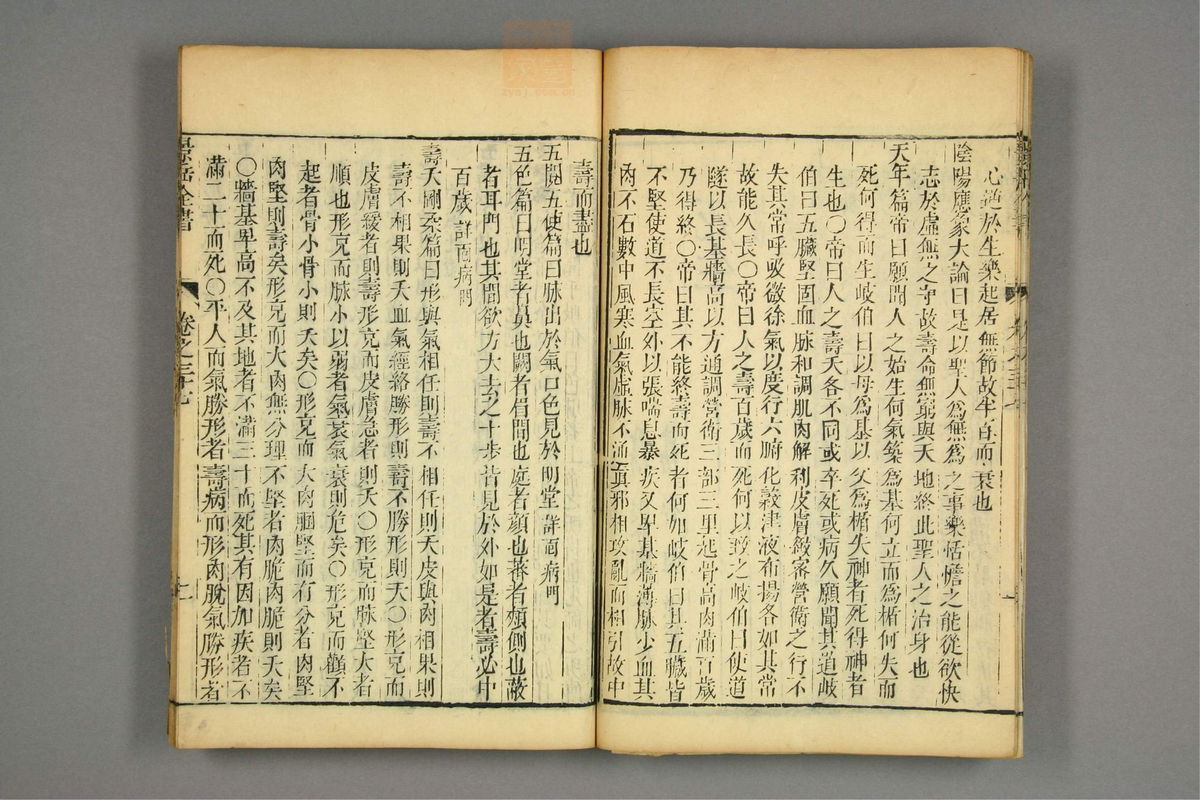 心逆於生樂起居無節故半百而衰也
陰陽應象大論曰是以聖人爲無爲之事樂恬憺之能從欲快
志於虛無之守故壽命無窮與天地終此聖人之治身也
天年篇帝曰願聞人之始生何氣築爲基何立而爲楯何失而
死何得而生岐伯曰以母爲基以父爲楯失神者死得神者
生也〇帝曰人之壽夭各不同或卒死或病久願聞其道岐
伯曰五臟堅固血脉和調肌肉解利皮膚緻密營衛之行不
失其常呼吸微徐氣以度行六腑化穀津液布揚各如其常
故能久長〇帝曰人之壽百歲而死何以致之岐伯曰使道
隧以長基牆高以方通調營衛三部三里起骨高肉滿百歲
乃得終〇帝曰其不能終壽而死者何如岐伯曰其五臟皆
不堅使道不長空外以張喘息暴疾又卑基牆薄脉少血其
肉不石數中風寒血氣虛脉不通眞邪相攻亂而相引故中
壽而盡也
五閱五使篇曰脉出於氣口色見於明堂詳面病門
五色篇曰明堂者鼻也闕者眉間也庭者顔也蕃者頰側也蔽
者耳門也其間欲方大去之十步皆見於外如是者壽必中
百歲詳面病門
壽夭剛柔篇曰形與氣相任則壽不相任則夭皮與肉相果則
壽不相果則夭血氣經絡勝形則壽不勝形則夭〇形充而
皮膚緩者則壽形充而皮膚急者則夭〇形充而脉堅大者
順也形充而脉小以弱者氣衰氣衰則危矣〇形充而顴不
起者骨小骨小則夭矣〇形充而大肉䐃堅而有分者肉堅
肉堅則壽矣形充而大肉無分理不堅者肉脆肉脆則夭矣
〇牆基卑高不及其地者不滿三十而死其有因加疾者不
滿二十而死〇平人而氣勝形者壽病而形肉脫氣勝形者
景岳全書
卷之三十七